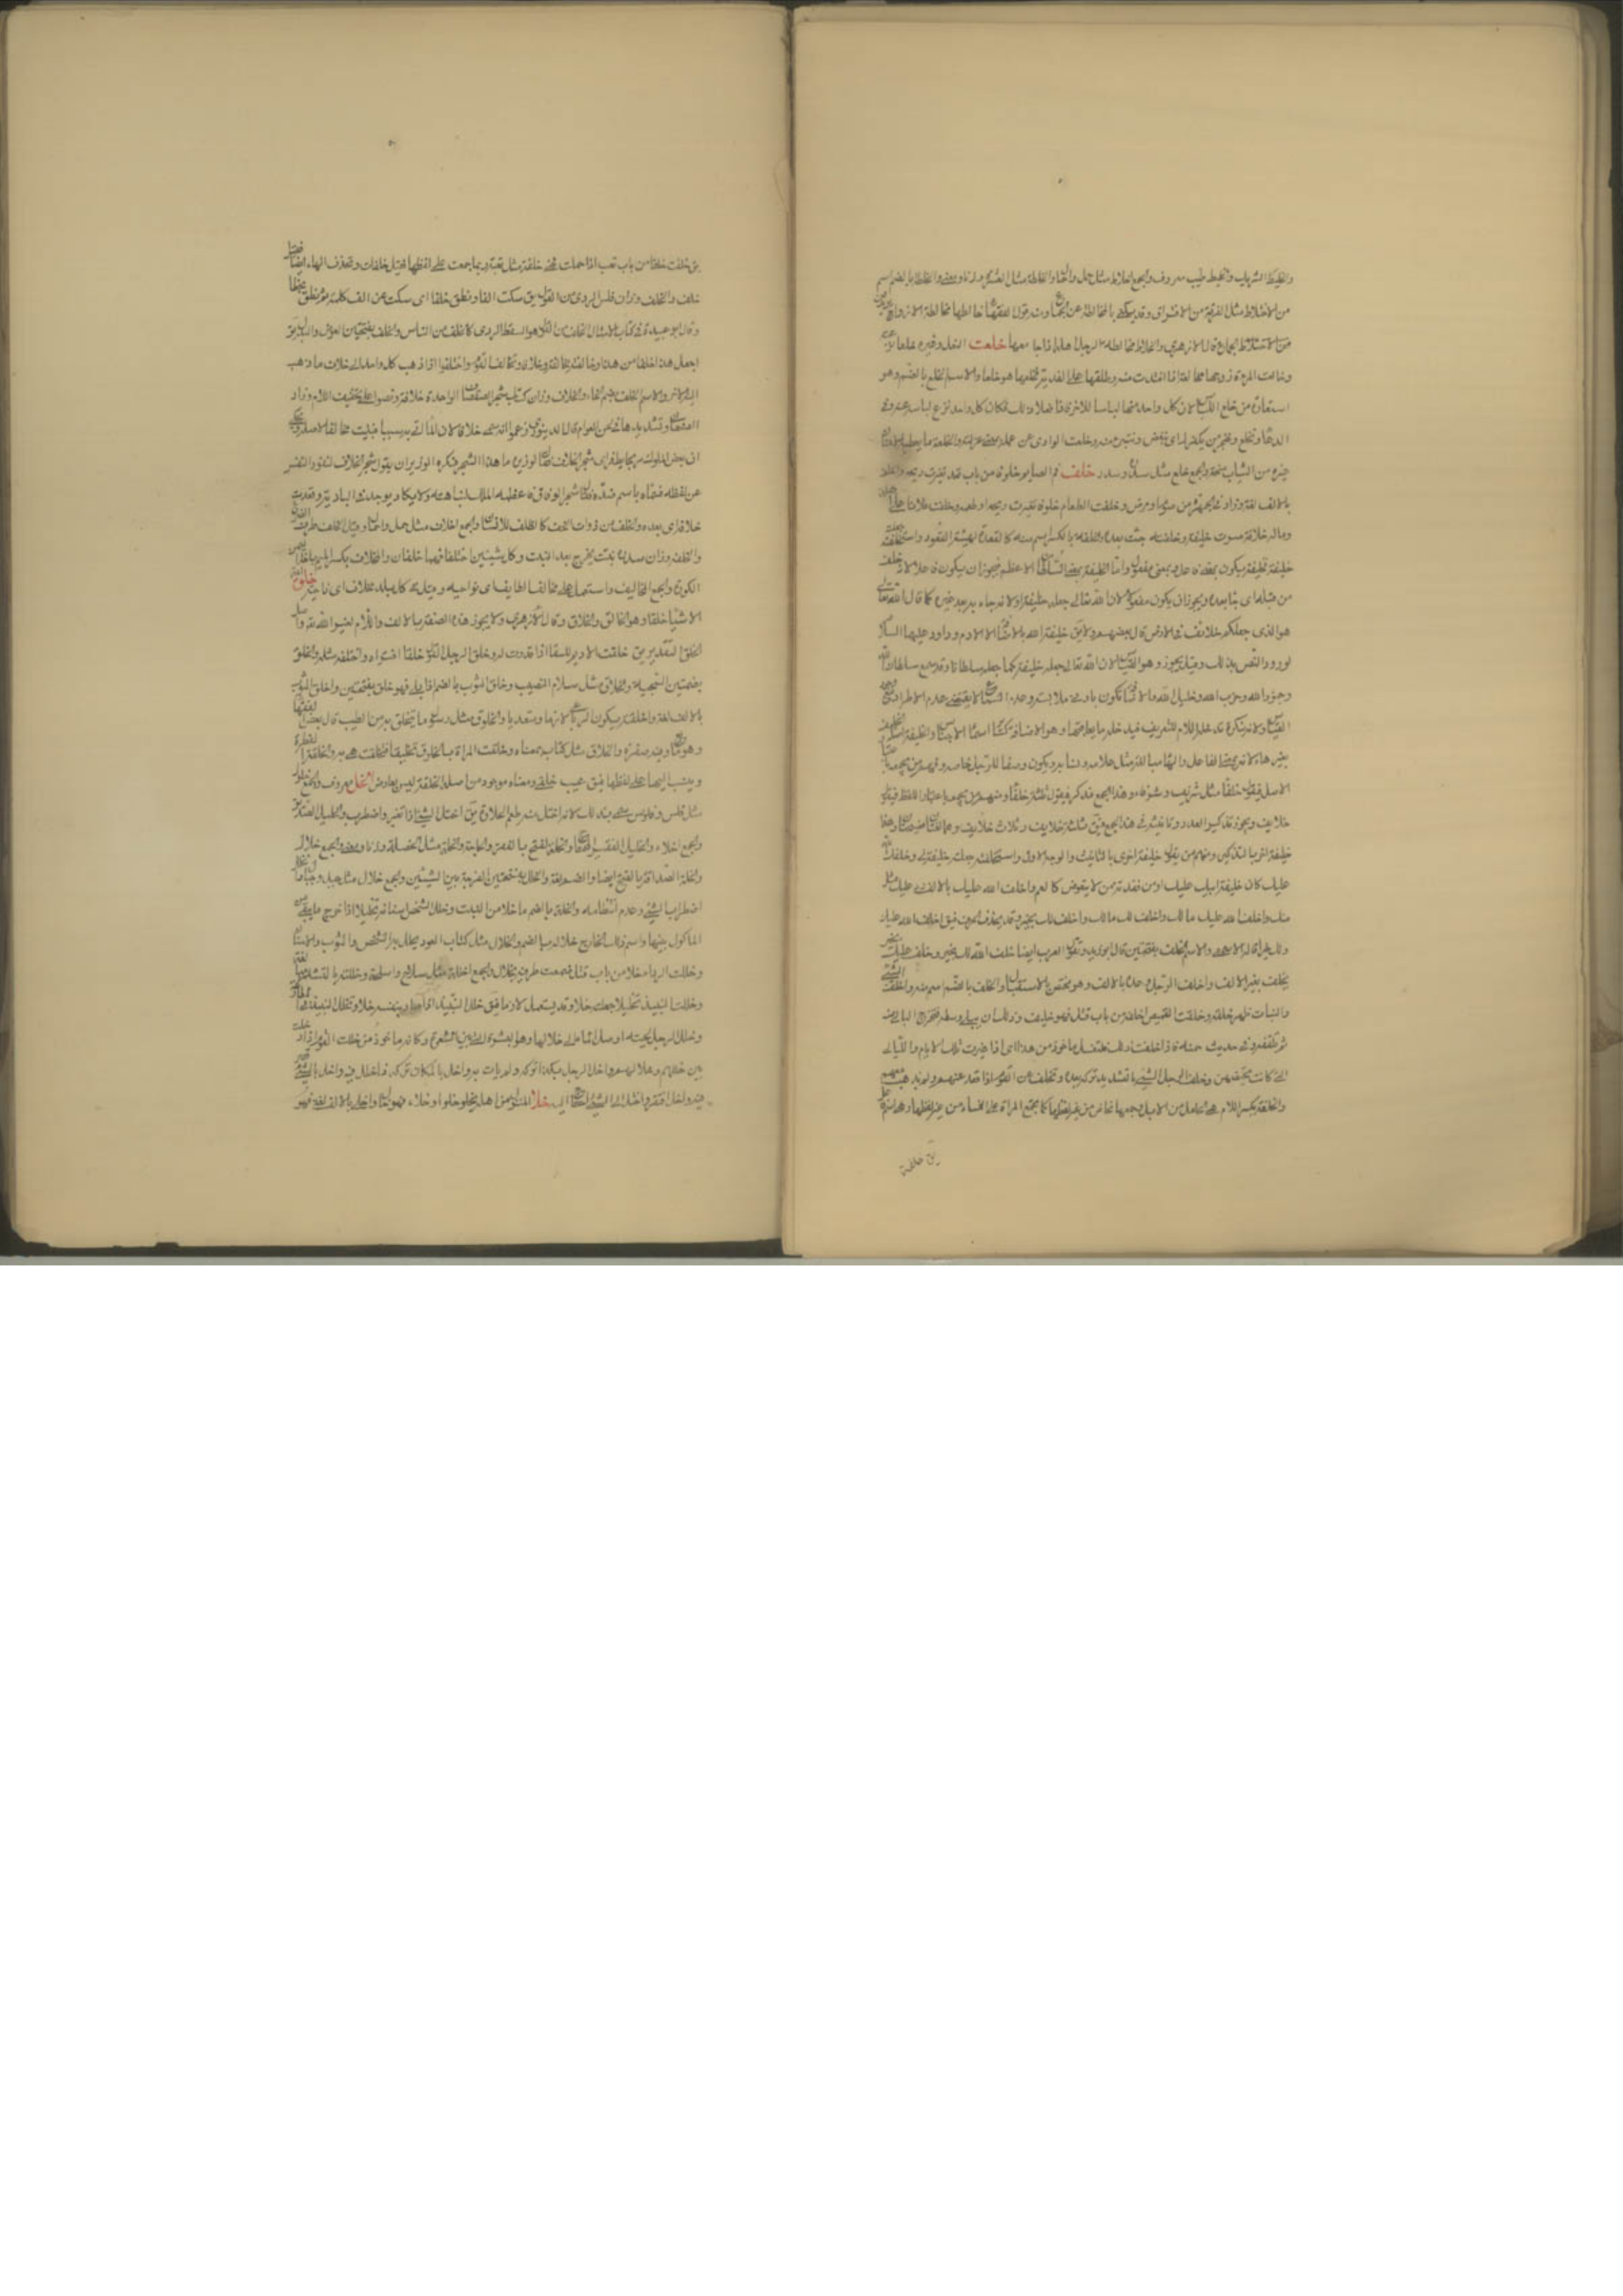 والخليط الشريك والخليط طيب معروف والجمع اخلاط مثل حمل واحمال والخلطة مثل العشرة وزنا ومعنى والخلطة بالضم اسم
من الاختلاط مثل الفرقة من الافتراق وقد يكنى بالمخالطة عن الجماع ومنه قول الفقهاء خالطها مخالطة الازواج
قال الازهري والخلاط مخالطة الرجل اهله اذا جامعها خلعت النعل وغيره خلعا
وخالعت المرءة زوجها مخالعة اذا افتدت منه وطلقها على الفدية فخلعها هو خلعا والاسم الخلع بالضم وهو
استعارة من خلع اللباس لان كل واحد منهما لباس للاخر فاذا فعلا ذلك فكان كل واحد نزع لباسه عنه وفى
الدعاء ونخلع ونهجر من يكفرك اى نبغض ونتبرء منه وخلعت الوالى عن عمله بمعنى عزلته والخلعة ما يعطيه الانسان
غيره من الثياب منحة والجمع خلع مثل سدرة وسدر خلف فم الصايم خلوفا من باب قعد تغيرت ريحه واخلف
بالالف لغة وزاد فى الجمهرة من صوم او مرض وخلف الطعام خلوفا تغيرت ريحه او طعمه وخلفت فلانا على اهله
وماله خلافة صرت خليفته وخلفته جئت بعده والخلفة بالكسر اسم منه كالقعدة لهيئة القعود واستخلفته
خليفة فخليفة يكون بمعنى فاعل وبمعنى مفعول واما الخليفة بمعنى السلطان الاعظم فيجوز ان يكون فاعلا لانه خلف
من قبله اى جاء بعده ويجوز ان يكون مفعولا لان الله تعالى جعله خليفة او لانه جاء به بعد غيره كما قال الله تعالى
هو الذى جعلكم خلائف فى الارض قال بعضهم ولا يق خليفة الله بالاضافة الا لادم وداود عليهما السلام
لورود النص بذلك وقيل يجوز وهو القياس لان الله تعالى جعله خليفة كما جعله سلطانا وقد سمع سلطان الله
وجنود الله وحزب الله وخليل الله والاضافة تكون بادنى ملابسة وعدم السماع لا يقتضى عدم الاطراد مع وجود
القياس ولانه نكرة تدخله اللام للتعريف فيدخله ما يعاقبها وهو الاضافة كسائر اسماء الاجناس والخليفة اصله خليف
بغير هاء لانه بمعنى الفاعل والهاء مبالغة مثل علامة ونسابة ويكون وصفا للرجل خاصة ومنهم من يجمعه باعتبار
الاصل فيقول خلفاء مثل شريف وشرفاء وهذا الجمع مذكر فيقول ثلثة خلفاء ومنهم من يجمع باعتبار اللفظ فيقول
خلايف ويجوز تذكير العدد وتانيثه فى هذا الجمع فيق ثلثة خلايف وثلاث خلايف وهما لغتان فصيحتان وهذا
خليفة اخر بالتذكير ومنهم من يقول خليفة اخرى بالتانيث والوجه الاول واستخلفته جعلته خليفة لى وخلف الله
عليك كان خليفة ابيك عليك او من فقدته ممن لا يتعوض كالعم واخلف الله عليك بالالف رد عليك مثل
ما ذهب منك واخلف الله عليك مالك واخلف لك مالك واخلف لك بخير وقد يحذف الحرف فيق اخلف الله عليك
ولك خيرا قاله الاصمعى والاسم الخلف بفتحتين قال ابو زيد وتقول العرب ايضا خلف الله لك بخير وخلف عليك بخير
يخلف بغير الالف واخلف الرجل وعده بالالف وهو مختص بالاستقبال والخلف بالضم اسم منه واخلف الشجر
والنبات ظهر خلفته وخلفت القميص اخلفه من باب قتل فهو خليف وذلك ان يبلى وسطه فتخرج البالى منه
ثم تلفقه وفى حديث حمنة فاذا خلفت ذلك فلتغتسل ماخوذ من هذا اى اذا ميزت تلك الايام والليالى
التى كانت تحيضهن وخلف الرجل الشىء بالتشديد تركه بعده وتخلف عن القوم اذا قعد عنهم ولم يذهب معهم
والخلفة بكسر اللام هى الحامل من الابل وجمعها مخاض من غير لفظها كما تجمع المراة على النساء من غير لفظها وهى اسم
يق خلفة
يق خلفت خلفا من باب تعب اذا حملت فهى خلفة مثل تعبة وربما جمعت على لفظها فقيل خلفات وتحذف الهاء ايضا فقيل
خلف والخلف وزان فلس الردى من القول يق سكت الفا ونطق خلفا اى سكت عن الف كلمة ثم نطق بخطا
وقال ابو عبيدة فى كتاب الامثال الخلف من القول هو السقط الردى كالخلف من الناس والخلف بفتحتين العوض والبدل يق
اجعل هذا خلفا من هذا وخالفته مخالفة وخلافا وتخالف القوم واختلفوا اذا ذهب كل واحد الى خلاف ما ذهب
اليه الاخر والاسم الخلف بضم الخاء والخلاف وزان كتاب شجر الصفصاف الواحدة خلافة ونصوا على تخفيف اللام وزاد
الصغانى وتشديدها من لحن العوام قال الدينورى زعموا انه سمى خلافا لان الماء اتى به سببا فنبت مخالفا لاصله ويحكى
ان بعض الملوك مر بحايط فراى شجر الخلاف فقال لوزيره ما هذا الشجر فكره الوزير ان يقول شجر الخلاف لنفور النفس
عن لفظه فسماه باسم ضده فقال شجر الوفاق فاعظمه الملك لنباهته ولا يكاد يوجد فى البادية وقعدت
خلافه اى بعده والخلف من ذوات الخف كالظلف للانسان والجمع اخلاف مثل حمل واحمال وقيل الخلف طرف الضرع
والخلفة وزان سدرة نبت يخرج بعد النبت وكل شيئين اختلفا فهما خلفان والمخلاف بكسر الميم بلغة اليمن
الكورة والجمع المخاليف واستعمل على مخاليف الطايف اى نواحيه وقيل فى كل بلد مخلاف اى ناحية خلق الله
الاشياء خلقا وهو الخالق والخلاق وقال الازهرى ولا يجوز هذه الصفة بالالف واللام لغير الله تع واصل
الخلق التقدير يق خلقت الاديم للسقاء اذا قدرت له وخلق الرجل القول خلقا افتراه واختلقه مثله والخلق
بضمتين السجية والخلاق مثل سلام النصيب وخلق الثوب بالضم اذا بلى فهو خلق بفتحتين واخلق الثوب
بالالف لغة واخلقته يكون الرباعى لازما ومتعديا والخلوق مثل رسول ما يتخلق به من الطيب قال بعض الفقهاء
وهو مايع وفيه صفرة والخلاق مثل كتاب بمعناه وخلقت المراة بالخلوق تخليقا فتخلقت هى به والخلقة الفطرة
وينسب اليها على لفظها فيق عيب خلقى ومعناه موجود من اصل الخلقة ليس بعارض الخل معروف والجمع خلول
مثل فلس وفلوس سمى بذلك لانه اختل منه طعم الحلاوة يق اختل الشىء اذا تغير واضطرب والخليل الصديق
والجمع اخلاء والخليل الفقير المحتاج والخلة بالفتح الفقر والحاجة والخلة مثل الخصلة وزنا ومعنى والجمع خلال
والخلة الصداقة بالفتح ايضا والضم لغة والخلل بفتحتين الفرجة بين الشيئين والجمع خلال مثل جبل وجبال والخلل
اضطراب الشىء وعدم انتظامه والخلة بالضم ما خلا من النبت وخلل الشخص اسنانه تخليلا اذا اخرج ما يبقى من
الماكول بينها واسم ذلك الخارج خلالة بالضم والخلال مثل كتاب العود يخلل به الثوب والاسنان
وخللت الرداء خلا من باب قتل ضممت طرفيه بخلال والجمع اخلة مثل سلاح واسلحة وخللته بالتشديد مبالغة
وخللت النبيذ تخليلا جعلته خلا وقد يستعمل لازما فيق خلل النبيذ اذا صار بنفسه خلا وتخلل النبيذ فى المطاوعة
وخلل الرجل لحيته اوصل الماء الى خلالها وهو البشرة التى بين الشعر وكانه ماخوذ من تخللت القوم اذا دخلت
بين خللهم وخلالهم واخل الرجل بمركزه تركه ولم يات به واخل بالمكان تركه ذا خلل فيه واخل بالشىء قصر
فيه واخل افتقر واختل الى الشىء احتاج اليه خلا المنزل من اهله يخلو خلوا وخلاء فهو خال واخلى بالالف لغة فهو